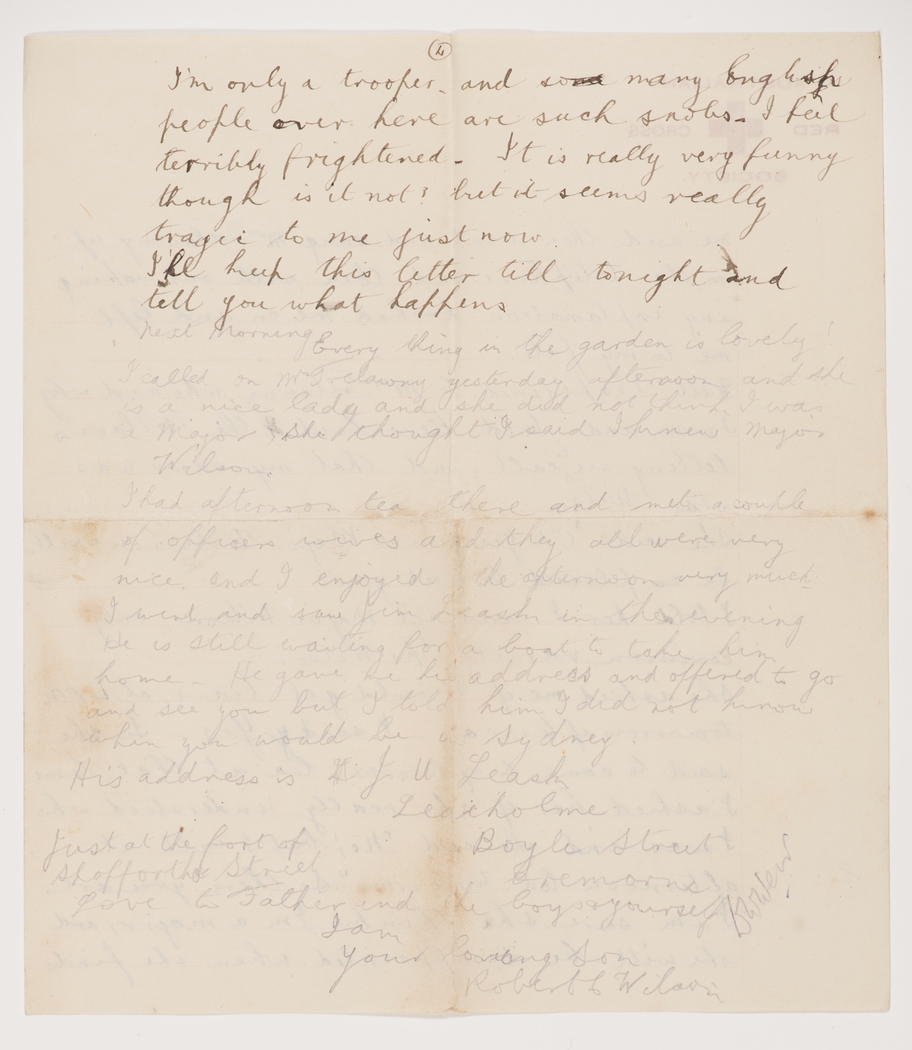 4
I'm only a trooper. and some many English
people over here are such snobs. I feel
terribly frightened. It is really very funny
though is it not? but it seems really
tragic to me just now.
I'll keep this letter till tonight and
tell you what happens
Next Morning
Every thing in the garden is lovely!
I called on Mrs Trelawny yesterday afternoon and she
is a nice lady and she did not think I was
a Major & she thought I said I knew Major
Wilson.
I had afternoon tea there and met a couple
of officers wives and they all were very
nice and I enjoyed the afternoon very much.
I went and saw Jim Leask in the evening
He is still waiting for a boat to take him
home. He gave me his address and offered to go
and see you but I told him I did not know
when you would be in Sydney.
His address is J U Leask
Leaholme
Boyle Street
Cremorne
Just at the foot of
Shafforths Street
Love to Father and the boys & yourself
I am
Your loving Son
Robert C Wilson